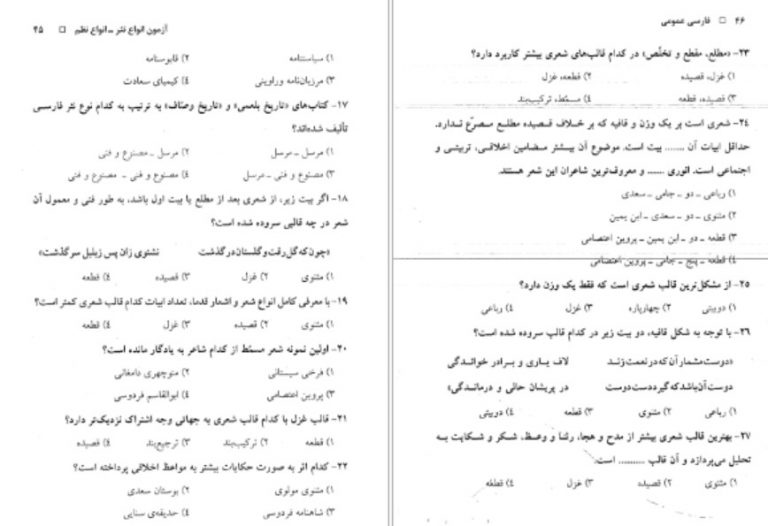 ۴۶ □ فارسی عمومی
۲۳- «مطلع، مقطع و تخلّص» در کدام قالب‌های شعری بیشتر کاربرد دارد؟
۱) غزل، قصیده ۲) قطعه، غزل
۳) قصیده، قطعه ۴) مسمّط، ترکیب‌بند
۲۴- شعری است بر یک وزن و قافیه که بر خلاف قصیده مطلع مصرّع ندارد.
حداقل ابیات آن ....... بیت است. موضوع آن بیشتر مضامین اخلاقی، تربیتی و
اجتماعی است. انوری ...... و معروف‌ترین شاعران این شعر هستند.
۱) رباعی ـ دو ـ جامی ـ سعدی
۲) مثنوی ـ دو ـ سعدی ـ ابن یمین
۳) قطعه ـ دو ـ ابن یمین ـ پروین اعتصامی
۴) قطعه ـ پنج ـ جامی ـ پروین اعتصامی
۲۵- از مشکل‌ترین قالب شعری است که فقط یک وزن دارد؟
۱) دوبیتی ۲) چهارپاره ۳) غزل ۴) رباعی
۲۶- با توجه به شکل قافیه، دو بیت زیر در کدام قالب سروده شده است؟
«دوست مشمار آن که در نعمت زند لاف یاری و برادر خواندگی
دوست آن باشد که گیرد دست دوست در پریشان حالی و درماندگی»
۱) رباعی ۲) مثنوی ۳) قطعه ۴) دوبیتی
۲۷- بهترین قالب شعری بیشتر از مدح و هجا، رثنا و وعظ، شکر و شکایت به
تحلیل می‌پردازد و آن قالب .......... است.
۱) مثنوی ۲) قصیده ۳) غزل ۴) قطعه
آزمون انواع نثر ـ انواع نظم □ ۴۵
۱) سیاستنامه ۲) قابوسنامه
۳) مرزبان‌نامه وراوینی ۴) کیمیای سعادت
۱۷- کتاب‌های «تاریخ بلعمی» و «تاریخ وصّاف» به ترتیب به کدام نوع نثر فارسی
تألیف شده‌اند؟
۱) مرسل ـ مرسل ۲) مرسل ـ مصنوع و فنی
۳) مصنوع و فنی ـ مرسل ۴) مصنوع و فنی ـ مصنوع و فنی
۱۸- اگر بیت زیر، از شعری بعد از مطلع یا بیت اول باشد، به طور فنی و معمول آن
شعر در چه قالبی سروده شده است؟
«چون که گل رفت و گلستان درگذشت نشنوی زان پس زبلبل سرگذشت»
۱) مثنوی ۲) غزل ۳) قصیده ۴) قطعه
۱۹- با معرفی کامل انواع شعر و اشعار قدما، تعداد ابیات کدام قالب شعری کمتر است؟
۱) مثنوی ۲) قصیده ۳) غزل ۴) قطعه
۲۰- اولین نمونه شعر مسمّط از کدام شاعر به یادگار مانده است؟
۱) فرخی سیستانی ۲) منوچهری دامغانی
۳) پروین اعتصامی ۴) ابوالقاسم فردوسی
۲۱- قالب غزل با کدام قالب شعری به جهاتی وجه اشتراک نزدیک‌تر دارد؟
۱) قطعه ۲) ترکیب‌بند ۳) ترجیع‌بند ۴) قصیده
۲۲- کدام اثر به صورت حکایات بیشتر به مواعظ اخلاقی پرداخته است؟
۱) مثنوی مولوی ۲) بوستان سعدی
۳) شاهنامه فردوسی ۴) حدیقه‌ی سنایی